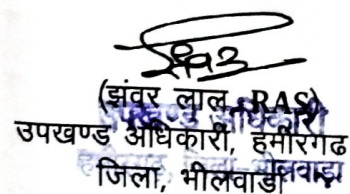 (झंवर लाल RAS)
उपखण्ड अधिकारी, हमीरगढ
जिला, भीलवाडा